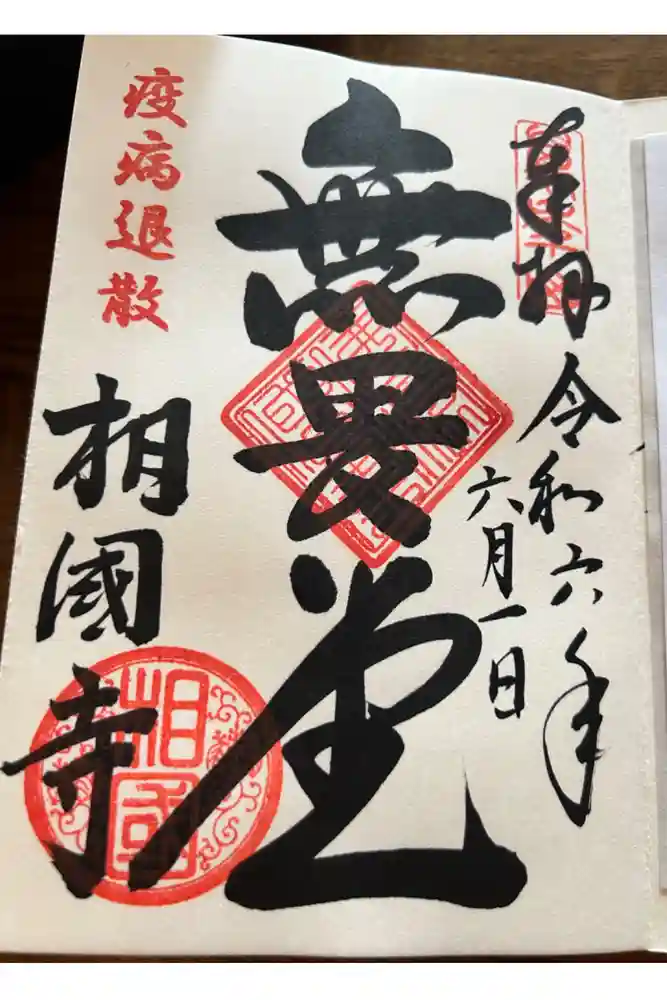 奉拝
令和六年
六月一日
無畏堂
疫病退散
相國寺
相國